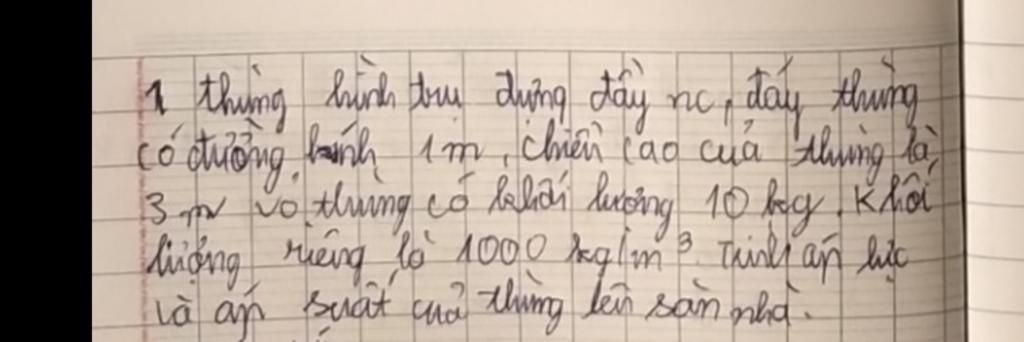 1 thùng hình trụ đựng đầy nc, đáy thùng
có đường kính 1m, chiều cao của thùng là
3 m vỏ thùng có khối lượng 10 kg. Khối
lượng riêng là 1000 kg/m³. Tính áp lực
và áp suất của thùng lên sàn nhà.